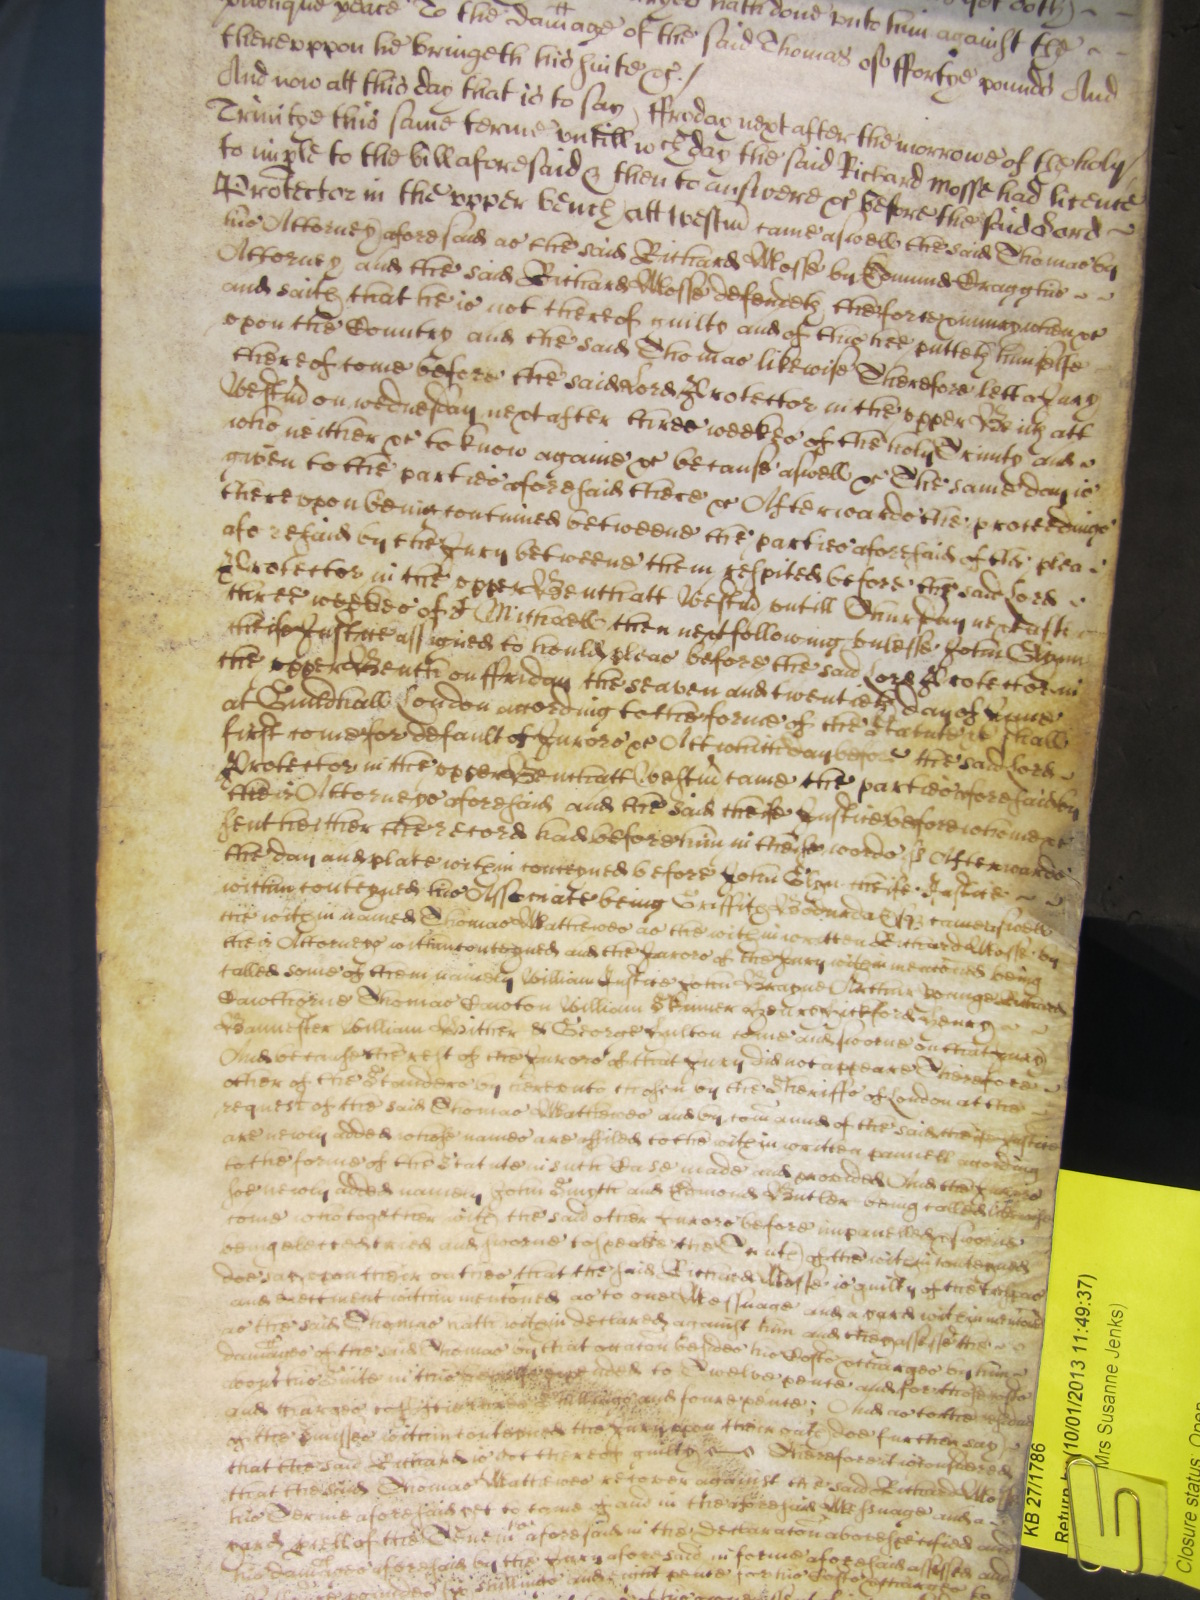 hath done unto him against the
publique peace To the damage of the said Thomas of ffortye pounds And
thereuppon he bringeth his suite &c /
And now att this day that is to say ffryday next after the morrowe of the holy
Trinitye this same terme untill wch day the said Richard Mosse had licence
to imple to the bill aforesaid & then to answere &c before the said Lord
Protector in the upper bench att Westm came aswell the said Thomas by
his Attorney aforesaid as the said Richard Mosse by Edmund
Attorney and the said Richard Mosse defendeth the force & iniury when &c
and saith that he is not thereof guilty and of this hee putteth himselfe
upon the Country and the said Thomas likewise Therefore lett a Jury
thereof come before the said Lord Protector in the upper Bench att
Westm on wednesday next after three weekes of the holy Trinity and
who neither &c to know againe &c because aswell &c The same day is
given to the parties aforesaid there &c Afterwards the proceedings
thereupon being continued betweene the parties aforesaid of the plea
aforesaid by the Jury betweene them respited before the said Lord
Protector in the upper Bench att Westm untill Thursday next after
three weekes of St Michaell then next following unlesse John Glynn
cheife Justice assigned to hould pleas before the said Lord Protector in
the upper Bench on ffriday the seaven and twentieth day of June
at Guildhall London according to the forme of the Statute &c shall
first come for default of Jurors &c Att which day before the said Lord
Protector in the upper Bench att Westm came the parties aforesaid by
their Attorneys aforesaid and the said cheife Justice before whome &c
sent hether the record had before him in these words ss Afterwards
the day and place within conteyned before John Glyn cheife Justice
within conteyned his Associate being Griffith Bodurda Esq came aswell
the within named Thomas Mathewes as the within written Richard Mosse by
their Attorneys within conteyned and the Jurors of the Jury within mencioned being
called some of them namely William Justice John Arthur Younge
Cawthorne Thomas William Skinner Henry
Bannester William & George come and sworne on that Jury
And because the rest of the Jurors of that Jury did not appeare Therefore
other of the Standers by hereunto chosen by the Sheriffs of London at the
request of the said Thomas Mathewes and by comaund of the said cheife Justice
are newly added whose names are affiled to the within written pannell according
to the forme of the Statute in such Case made and provided And the Jurors
soe newly added namely John Smyth and Edmond Butler being called likewise
come who together with the said other Jurors before impanelled & sworne
being elected tried and sworne to speake the Truth of the within conteyned
doe say upon their oathes that the said Richard Mosse is guilty of the trespas
and eiectment within mencioned as to one Messuage and a yard within mencioned
as the said Thomas hath within declared against him and they assesse the
damages of the said Thomas by that occacon besides his Costs & charges by him
about his Suite in this behalfe expended to Twelve pence and for those costs
and charges to shillings and foure pence And as to the residue
of the premisses within conteyned the Jury upon their oath doe further say
that the said Richard is not thereof guilty Therefore it is considered
that the said Thomas Mathewes recover against the said Richard Mosse
his Terme aforesaid yet to come of and in the aforesaid Messuage and a
yard of the Tenemts aforesaid in the declaracon above specified and
his damages aforesaid by the Jury aforesaid in forme aforesaid assessed and
shillings and eight pence for his Costs & charges
KB 27/1786
Return by (10/01/2013 11:49:37)
Mrs Susanne Jenks)
Closure status Open